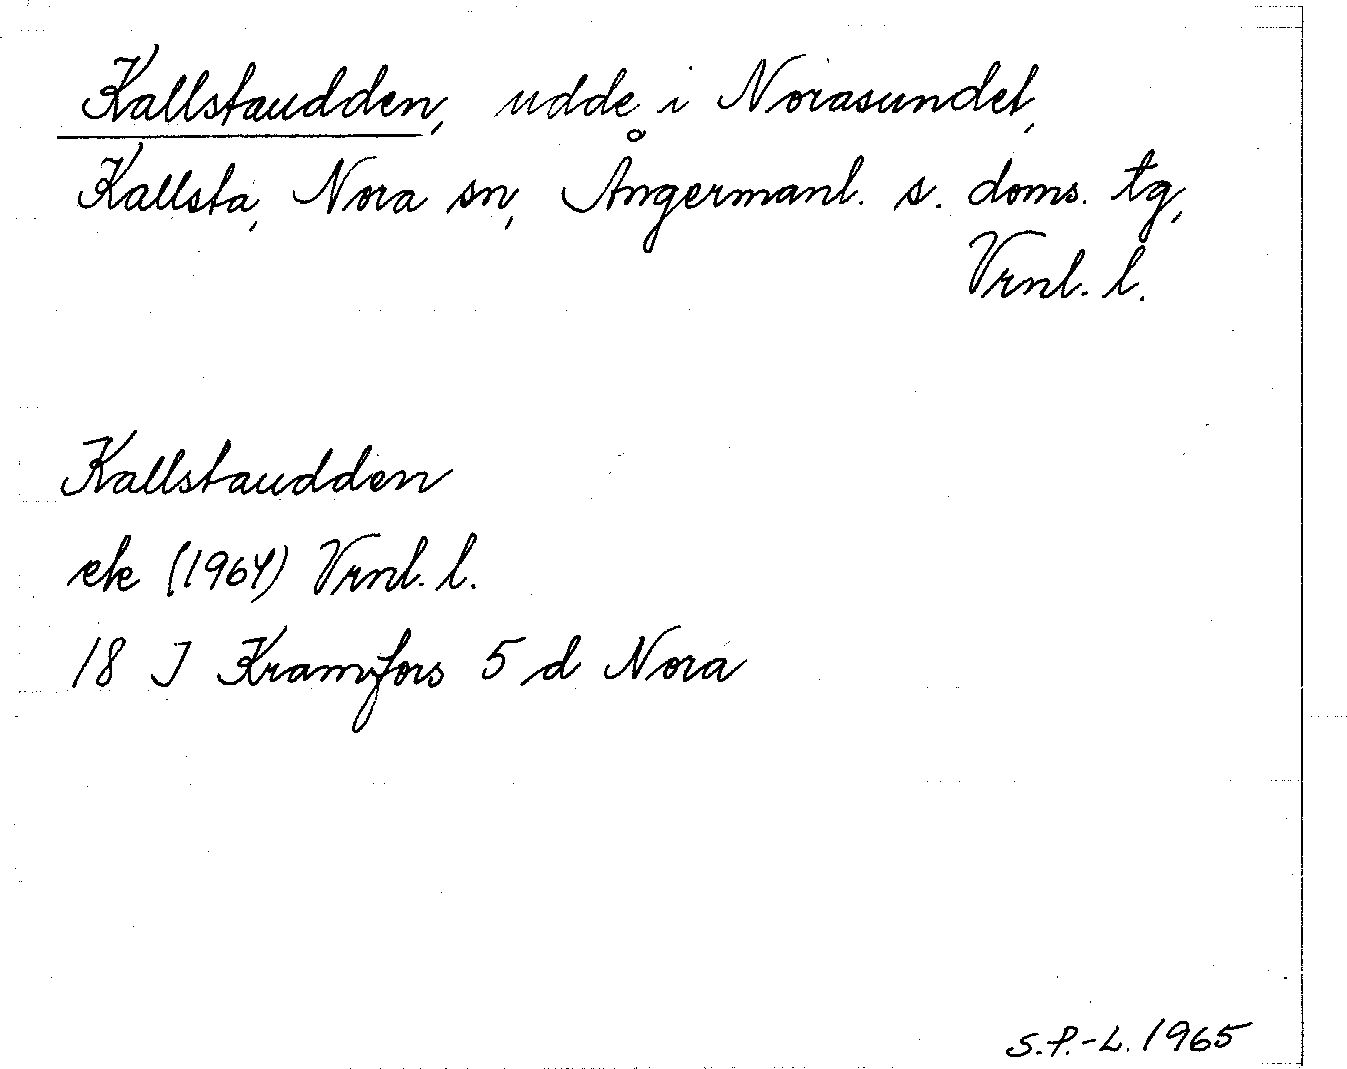 Kallstaudden, udde i Norasundet,
Kallsta, Nora sn, Ångermanl. s. doms. tg,
Vrnl. l.
Kallstaudden
ek (1964) Vrnl. l.
18 J Kramfors 5 d Nora
S.P.-L. 1965